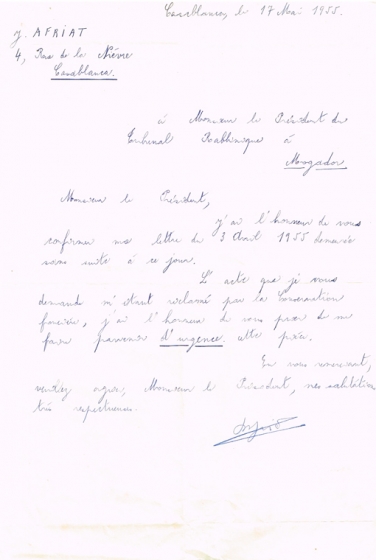 Casablanca, le 17 Mai 1955.
J. AFRIAT
4, Rue de la Nièvre
Casablanca.
à Monsieur le Président du
Tribunal Rabbinique à
Mogador
Monsieur le Président,
j'ai l'honneur de vous
confirmer ma lettre du 3 Avril 1955 demeurée
sans suite à ce jour.
L'acte que je vous
demande m'étant réclamé par la Conservation
foncière, j'ai l'honneur de vous prier de me
faire parvenir d'urgence cette pièce.
En vous remerciant,
veuillez agréer, Monsieur le Président, mes salutations
très respectueuses.